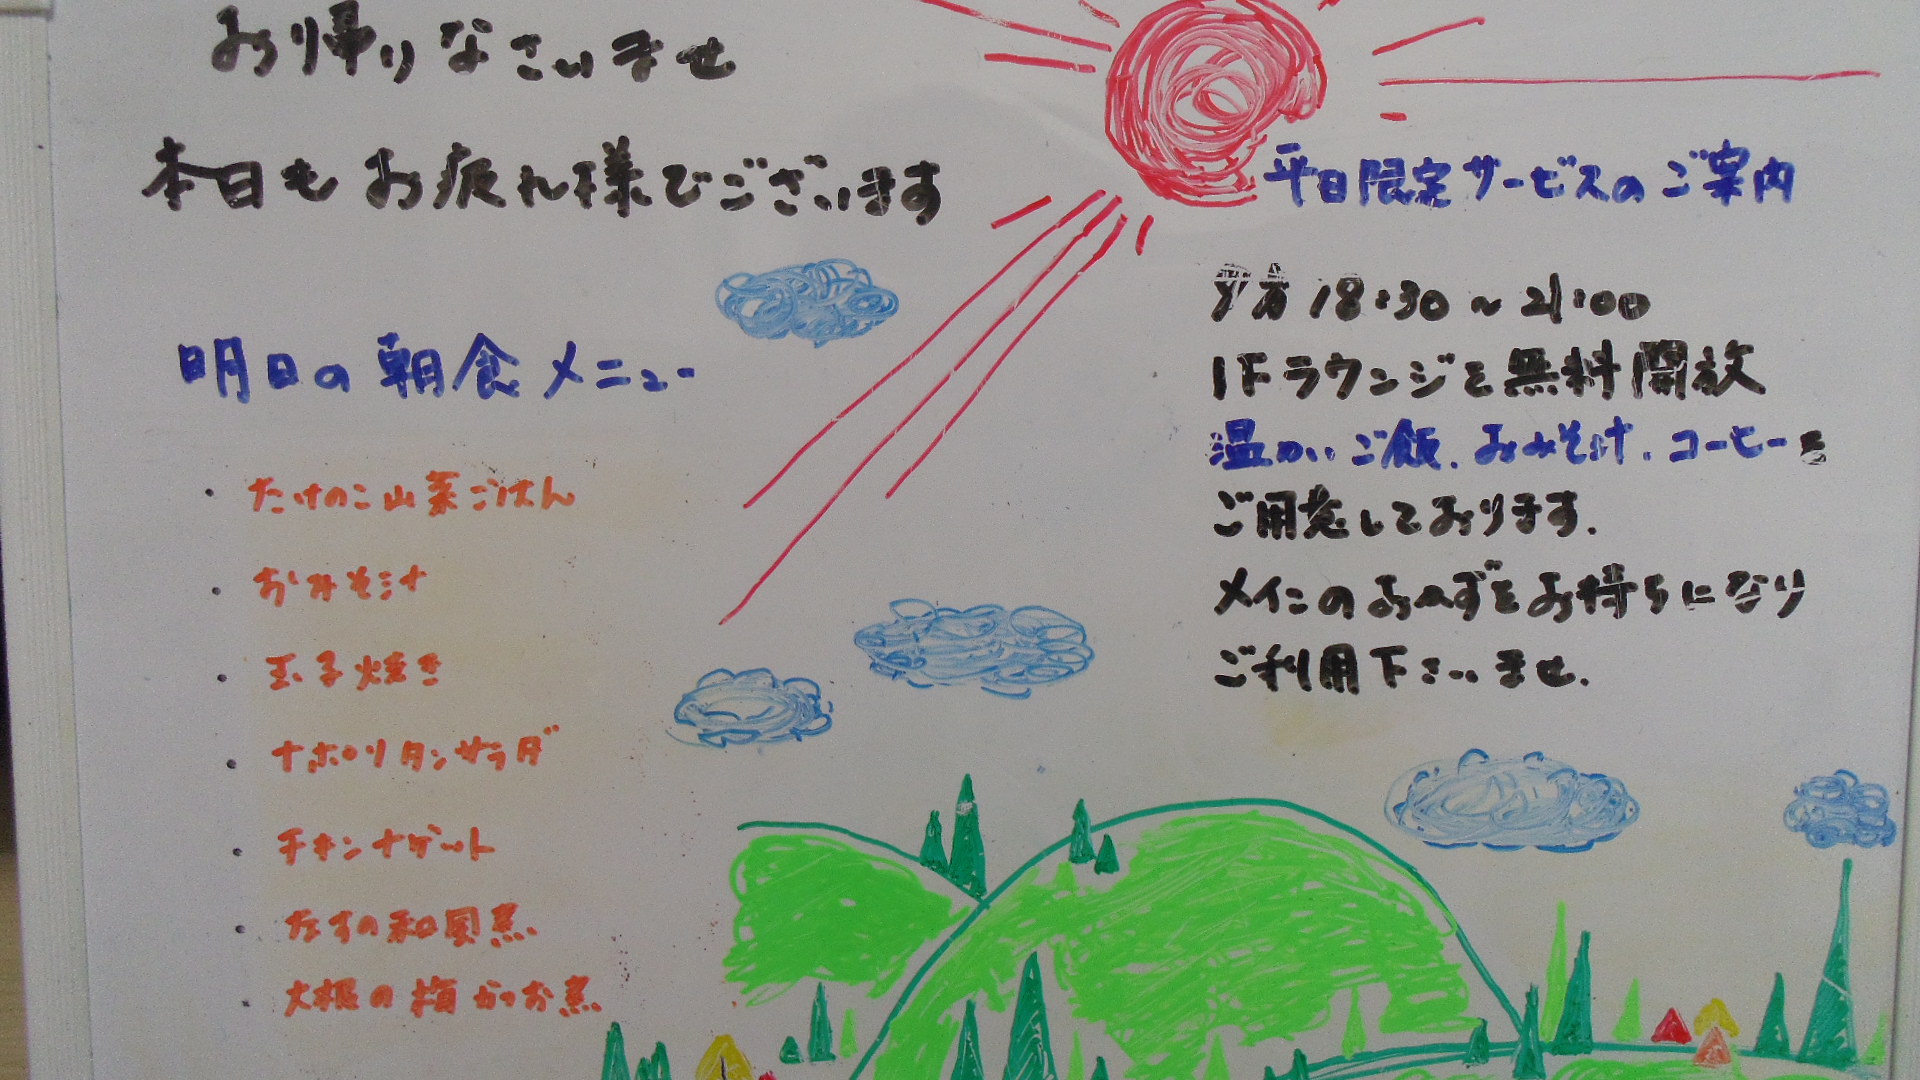 お帰りなさいませ
本日もお疲れ様でございます
明日の朝食メニュー
・たけのこ山菜ごはん
・おみそ汁
・玉子焼き
・ナポリタンサラダ
・チキンナゲット
・なすの和風煮
・大根の梅かつお煮
平日限定サービスのご案内
夕方18:30~21:00
1Fラウンジを無料開放
温かいご飯、おみそ汁、コーヒーを
ご用意しております。
メインのおかずをお持ちになり
ご利用下さいませ。